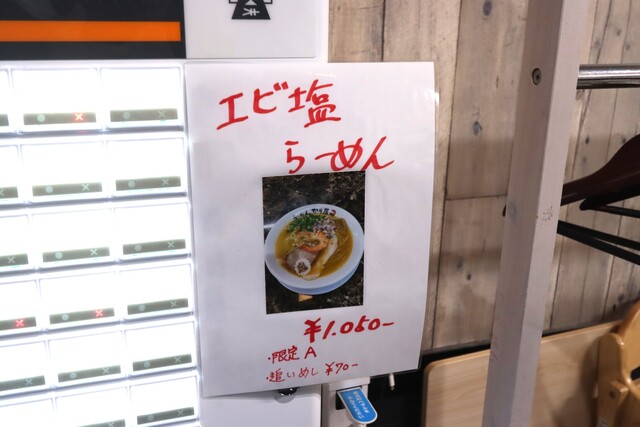 エビ塩
らーめん
¥1.050-
・限定 A
・追いめし ¥70-